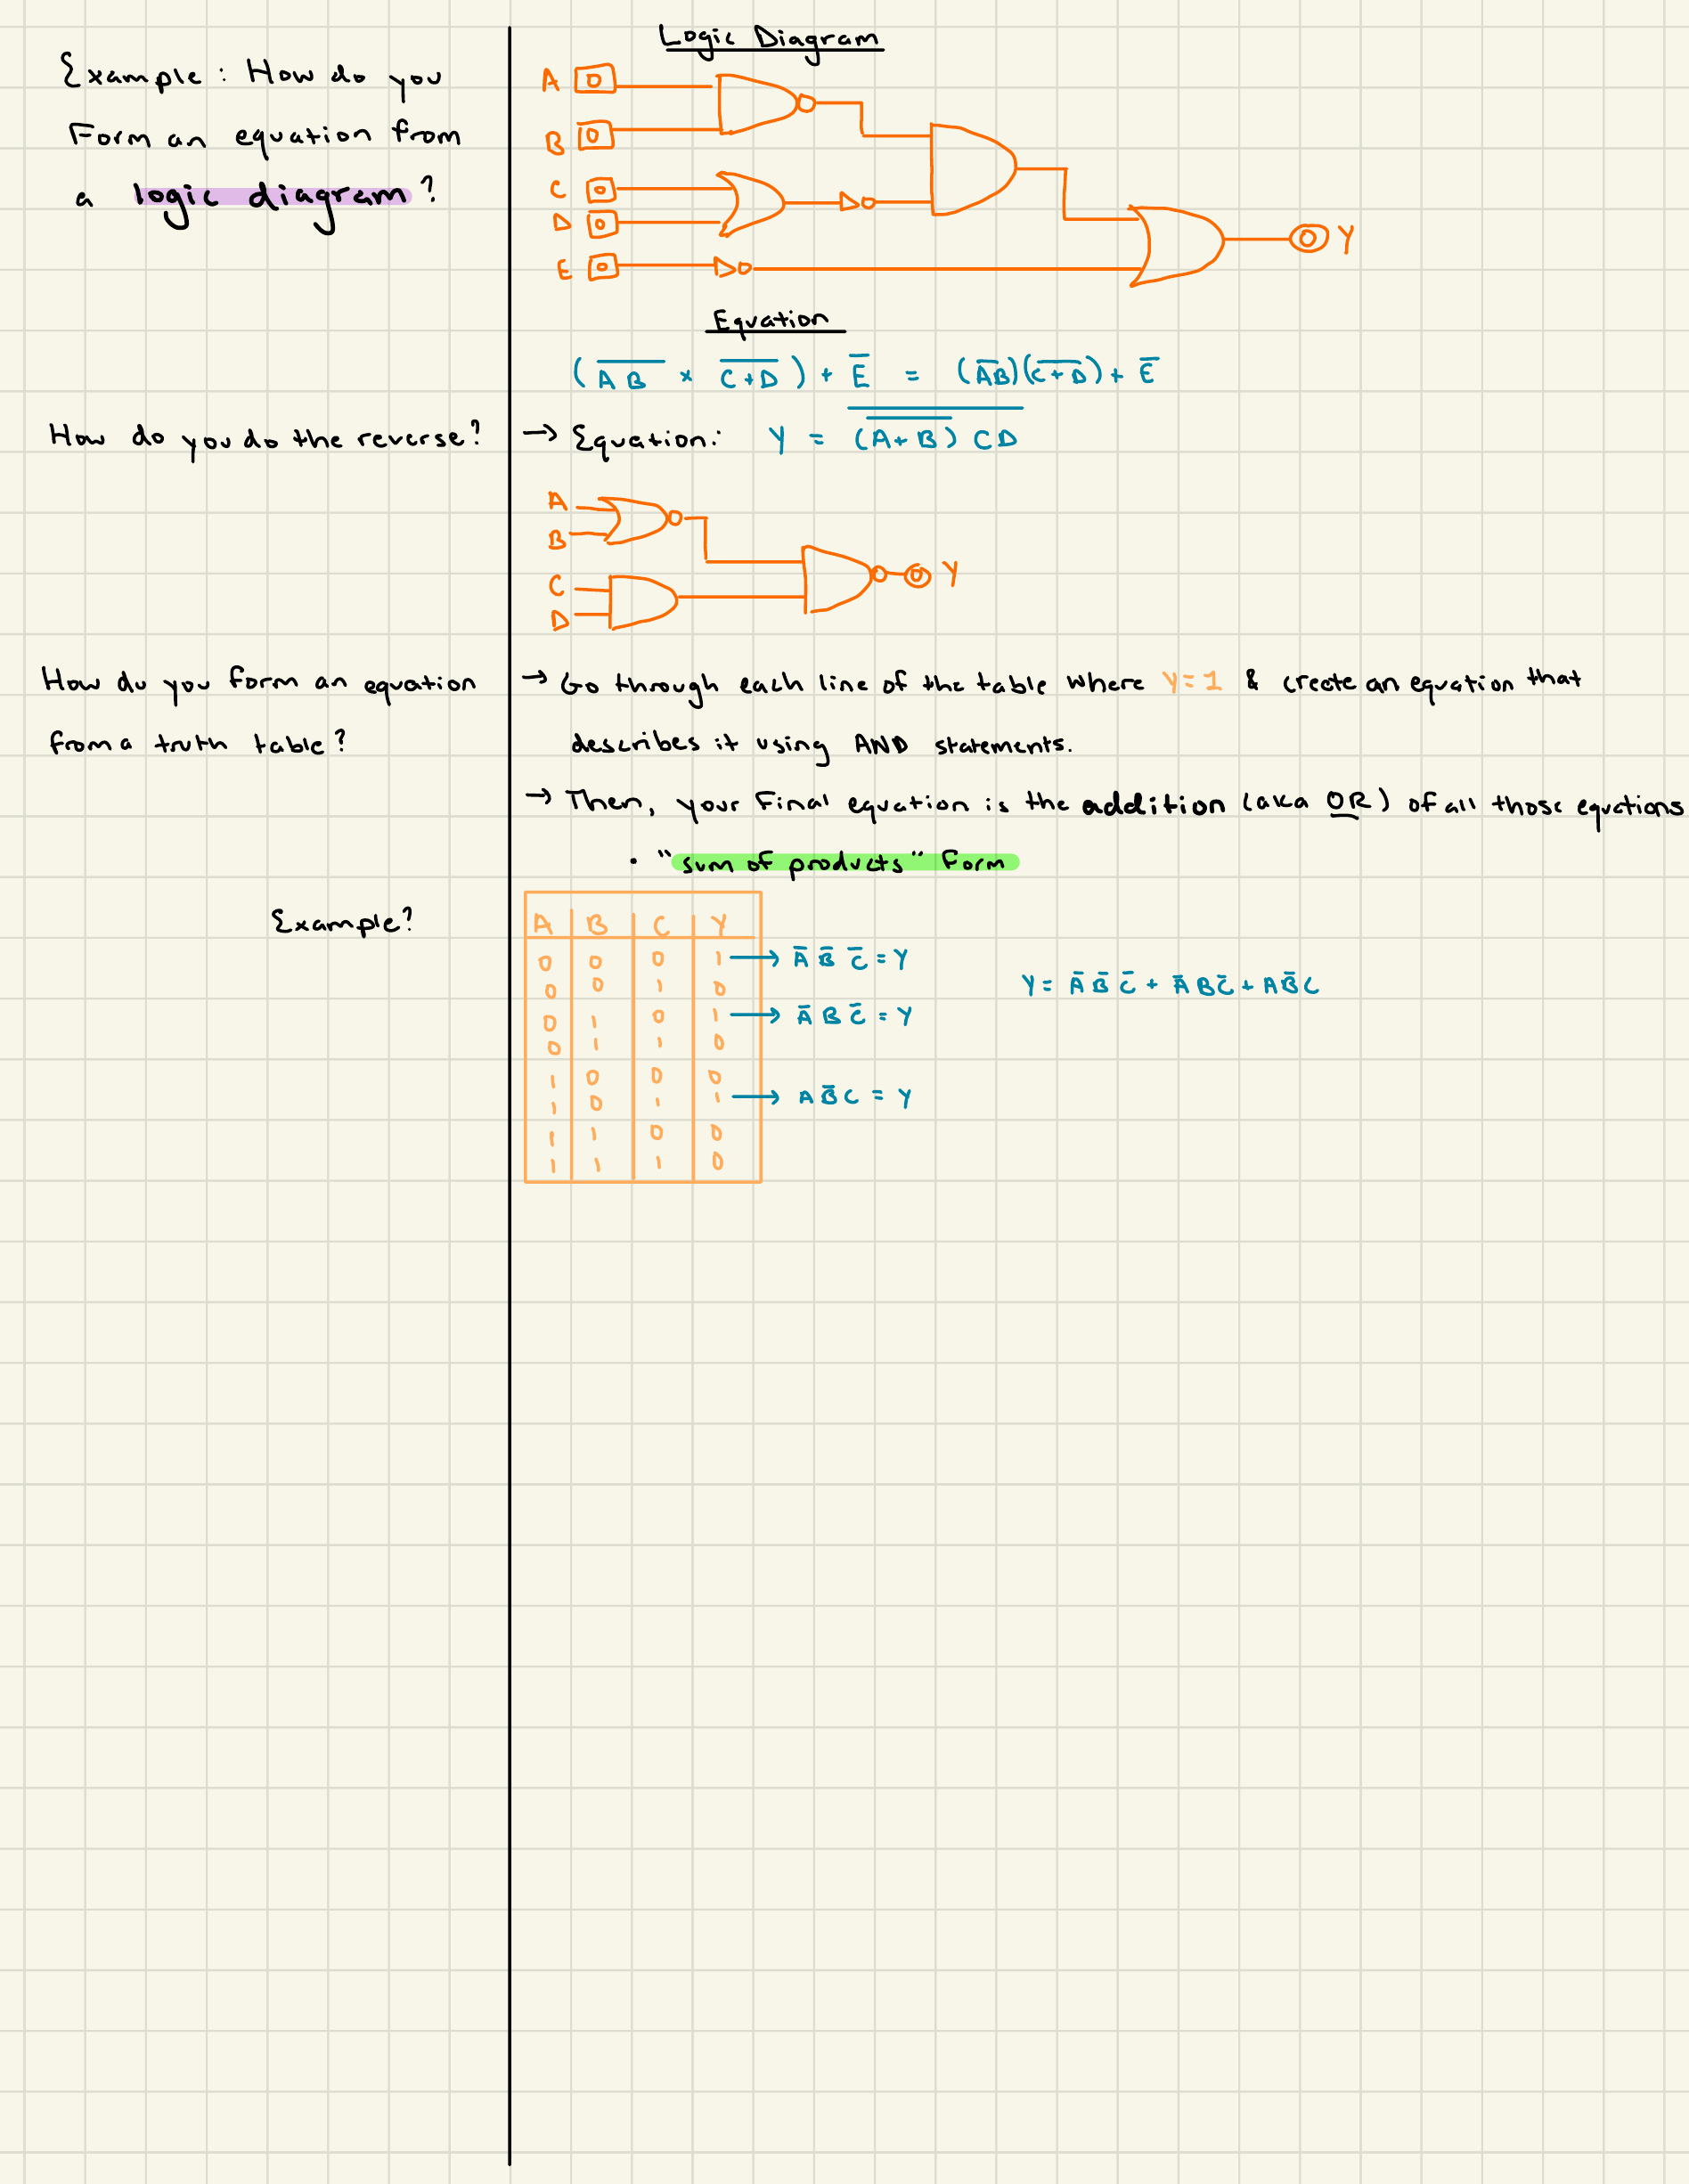 Example: How do you
Form an equation from
a logic diagram?
Logic Diagram
A 0
B 0
C 0
D 0
E 0
0 Y
Equation
(A̅B̅ × C̅+̅D̅) + E̅ = (A̅B̅)(C̅+̅D̅) + E̅
How do you do the reverse?
→ Equation: Y = (̅A̅+̅B̅)̅ ̅C̅D̅
A
B
C
D
0 Y
How do you form an equation
from a truth table?
→ Go through each line of the table where Y=1 & create an equation that
describes it using AND statements.
→ Then, your final equation is the addition (aka OR) of all those equations
• "sum of products" Form
Example?
A B C Y
0 0 0 1 → A̅ B̅ C̅ = Y
0 0 1 0
0 1 0 1 → A̅ B C̅ = Y
0 1 1 0
1 0 0 0
1 0 1 1 → A B̅ C = Y
1 1 0 0
1 1 1 0
Y = A̅ B̅ C̅ + A̅ B C̅ + A B̅ C